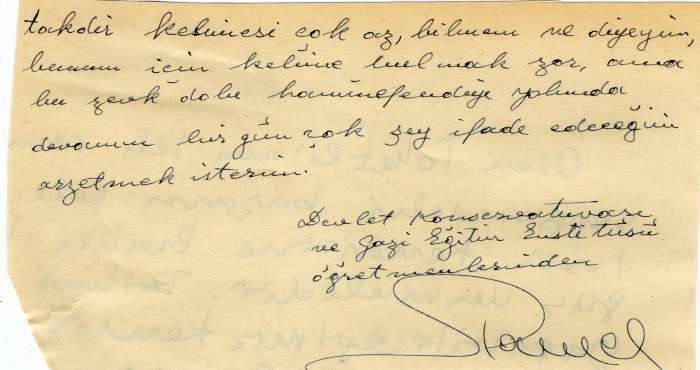 takdir kelimesi çok az, bilmem ne diyeyim,
bunun için kelime bulmak zor, ama
bu zevk dolu hanımefendiye yolunda
devamın bir gün çok şey ifade edeceğini
arzetmek isterim.
Devlet Konservatuvarı
ve Gazi Eğitim Enstitüsü
öğretmenlerinden